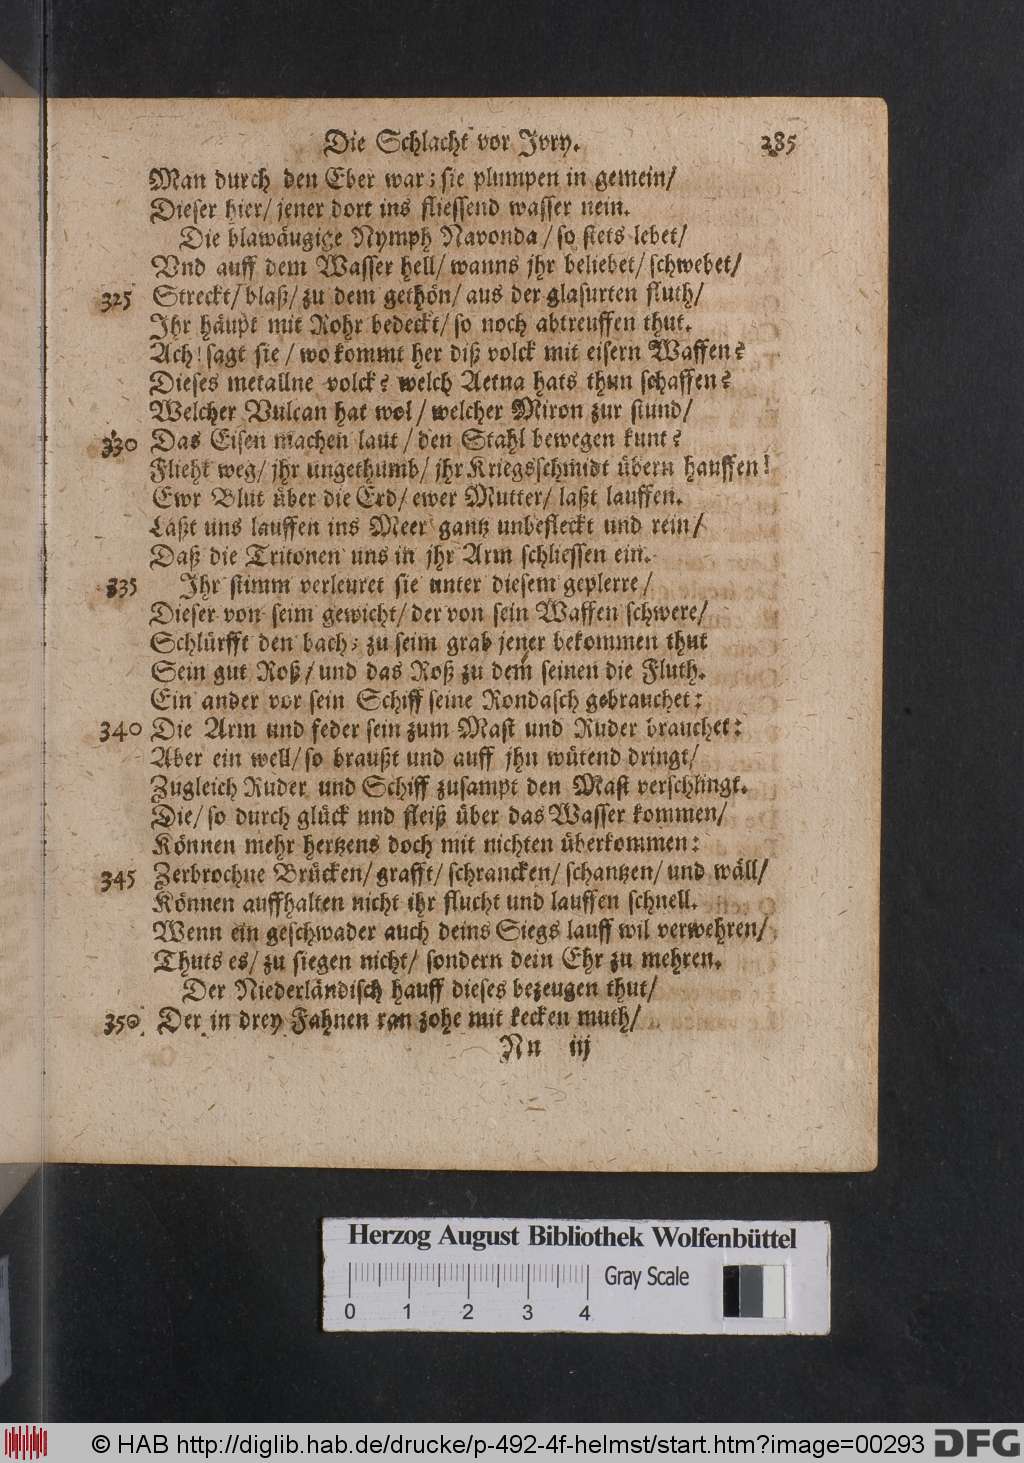 Die Schlacht vor Jvry. 285
Man durch den Eber war; sie plumpen in gemein/
Dieser hier/ jener dort ins fliessend wasser nein.
Die blawäugige Nymph Navonda/ so stets lebet/
Vnd auff dem Wasser hell/ wanns jhr beliebet/ schwebet/
325 Streckt/ blaß/ zu dem gethön/ aus der glasurten fluth/
Jhr häupt mit Rohr bedeckt/ so noch abtreuffen thut.
Ach! sagt sie/ wo kommt her diß volck mit eisern Waffen?
Dieses metallne volck? welch Aetna hats thun schaffen?
Welcher Vulcan hat wol/ welcher Miron zur stund/
330 Das Eisen machen laut/ den Stahl bewegen kunt?
Flieht weg/ jhr ungethumb/ jhr Kriegsschmidt übern hauffen!
Ewr Blut über die Erd/ ewer Mutter/ laßt lauffen.
Laßt uns lauffen ins Meer gantz unbefleckt und rein/
Daß die Tritonen uns in jhr Arm schliessen ein.
335 Jhr stimm verleuret sie unter diesem geplerre/
Dieser von seim gewicht/ der von sein Waffen schwere/
Schlürfft den bach; zu seim grab jener bekommen thut
Sein gut Roß/ und das Roß zu dem seinen die Fluth.
Ein ander vor sein Schiff seine Rondasch gebrauchet:
340 Die Arm und feder sein zum Mast und Ruder brauchet:
Aber ein well/ so braußt und auff jhn wütend dringt/
Zugleich Ruder und Schiff zusampt den Mast verschlingt.
Die/ so durch glück und fleiß über das Wasser kommen/
Können mehr hertzens doch mit nichten überkommen:
345 Zerbrochne Brücken/ grafft/ schrancken/ schantzen/ und wäll/
Können auffhalten nicht ihr flucht und lauffen schnell.
Wenn ein geschwader auch deins Siegs lauff wil verwehren/
Thuts es/ zu siegen nicht/ sondern dein Ehr zu mehren.
Der Niederländisch hauff dieses bezeugen thut/
350 Der in drey Fahnen ran zohe mit kecken muth/
Nn iij
Herzog August Bibliothek Wolfenbüttel
Gray Scale
0 1 2 3 4
© HAB http://diglib.hab.de/drucke/p-492-4f-helmst/start.htm?image=00293 DFG